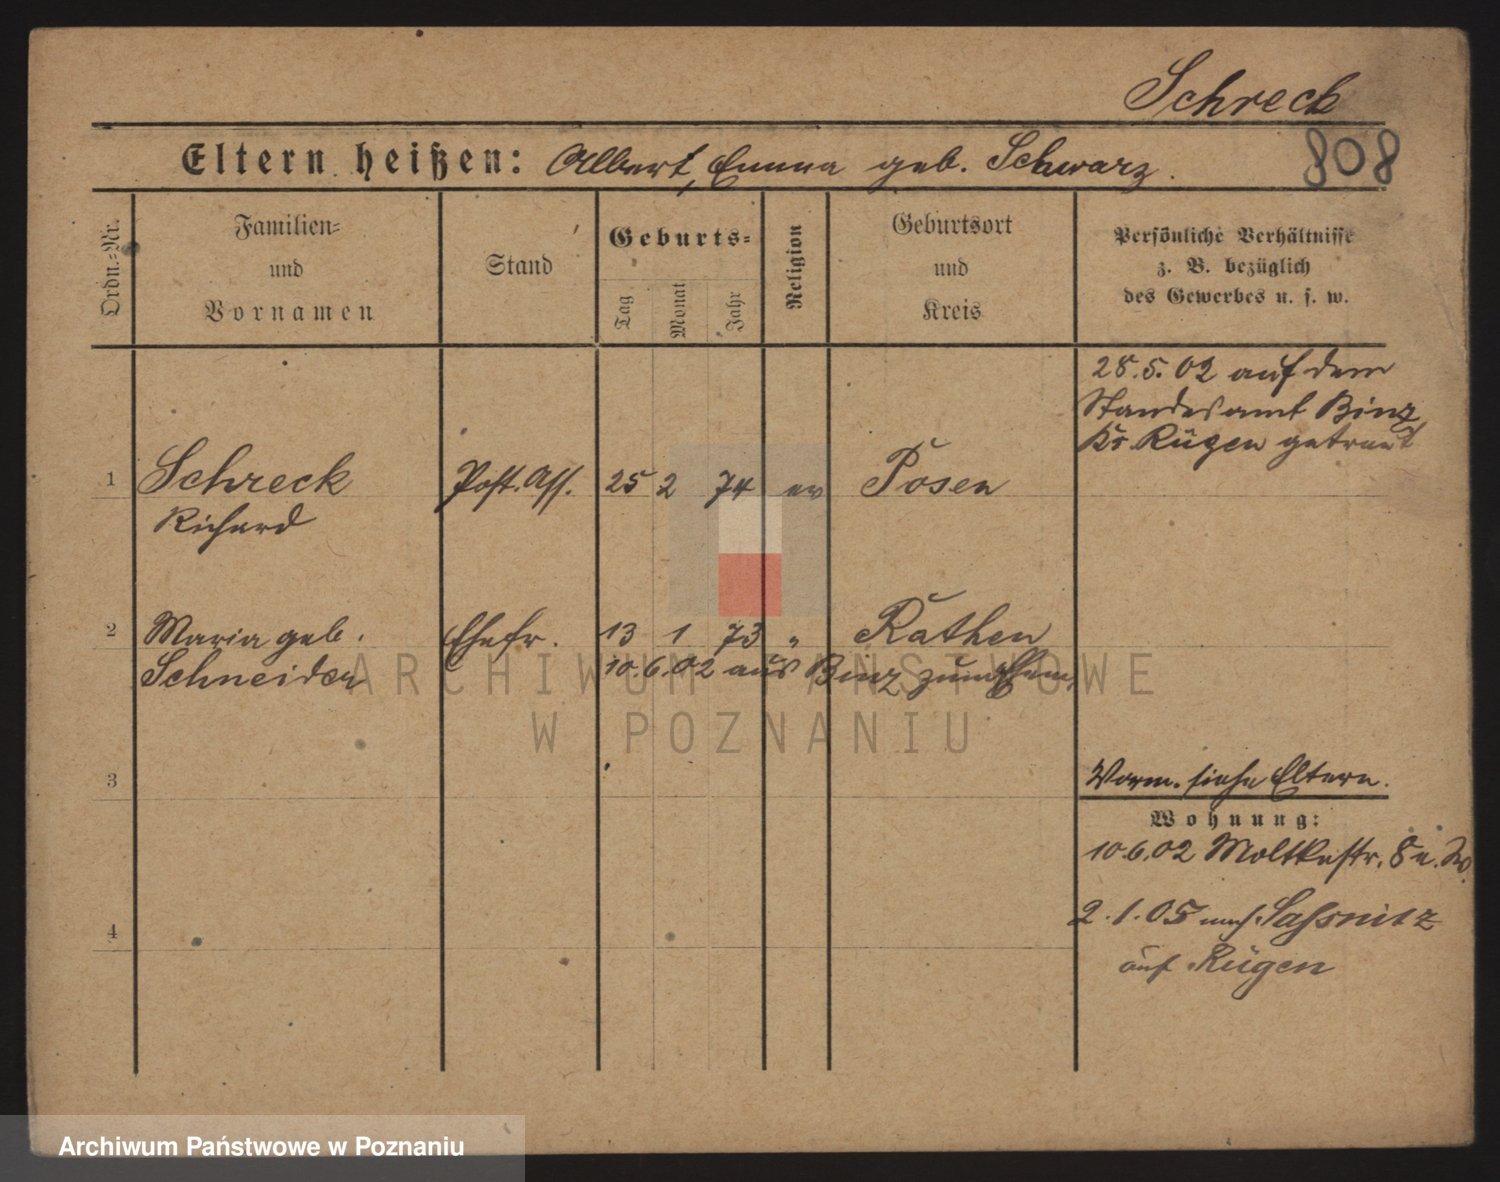 Schreck
Eltern heißen: Albert, Emma geb. Schwarz.
808
Ordn.-Nr.
Familien-
und
Vornamen
Stand
Geburts-
Tag
Monat
Jahr
Religion
Geburtsort
und
Kreis
Persönliche Verhältnisse
z. B. bezüglich
des Gewerbes u. s. w.
28.5.02 auf dem
Standesamt Binz
Kr. Rügen getraut
1 Schreck Post. Ass. 25 2 74 ev Posen
Richard
2 Maria geb. Ehefr. 13 1 73 " Rathen
Schneider 10.6.02 aus Binz zum Ehem.
3
Vorm. siehe Eltern.
Wohnung:
10.6.02 Moltkestr. 8
4
2.1.05 nach Saßnitz
auf Rügen
ARCHIWUM PAŃSTWOWE
W POZNANIU
Archiwum Państwowe w Poznaniu